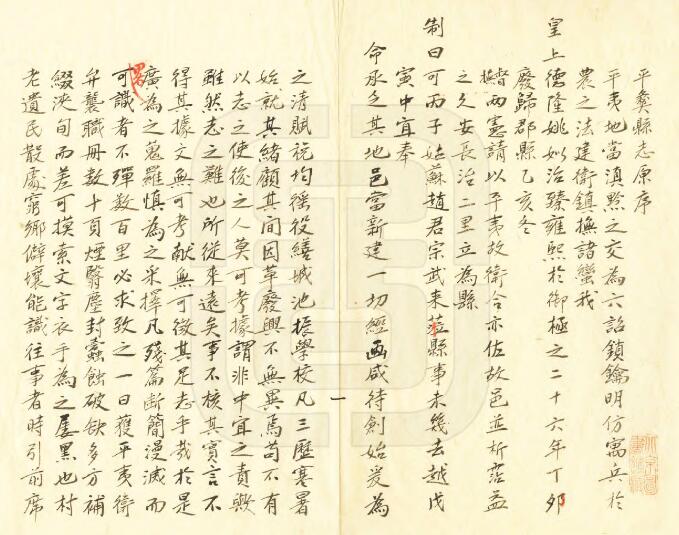 平彝縣志原序
平夷地當滇黔之交為六詔鎖鑰明仿寓兵於
農之法建衛鎮撫諸蠻我
皇上德隆姚姒治臻雍熙於御極之二十六年丁卯
廢歸郡縣乙亥冬
督撫兩憲請以平夷故衛合亦佐故邑並析霑益
之久安長治二里立為縣
制曰可丙子姑蘇趙君宗武来蒞縣事未幾去越戊
寅中宜奉
命承乏其地邑當新建一切經画咸待創始爰為
一
之清賦說均徭役繕城池振學校凡三歷寒暑
始就其緒顧其間因革廢興不無異焉苟不有
以志之使後之人莫可考據謂非中宜之責歟
雖然志之難也所從來遠矣事不核其實言不
得其據文無可考献無可徵其足志乎哉於是
廣為之蒐羅慎為之采擇凡殘篇斷簡漫滅而
可識者不殫數百里必求致之一日獲平夷衛
弁襲職冊数十頁煙翳塵封蠹蝕破缺多方補
綴浹旬而差可摸索文字衣手為之屢黑也村
老遺民散處窮鄉僻壤能識往事者時引前席